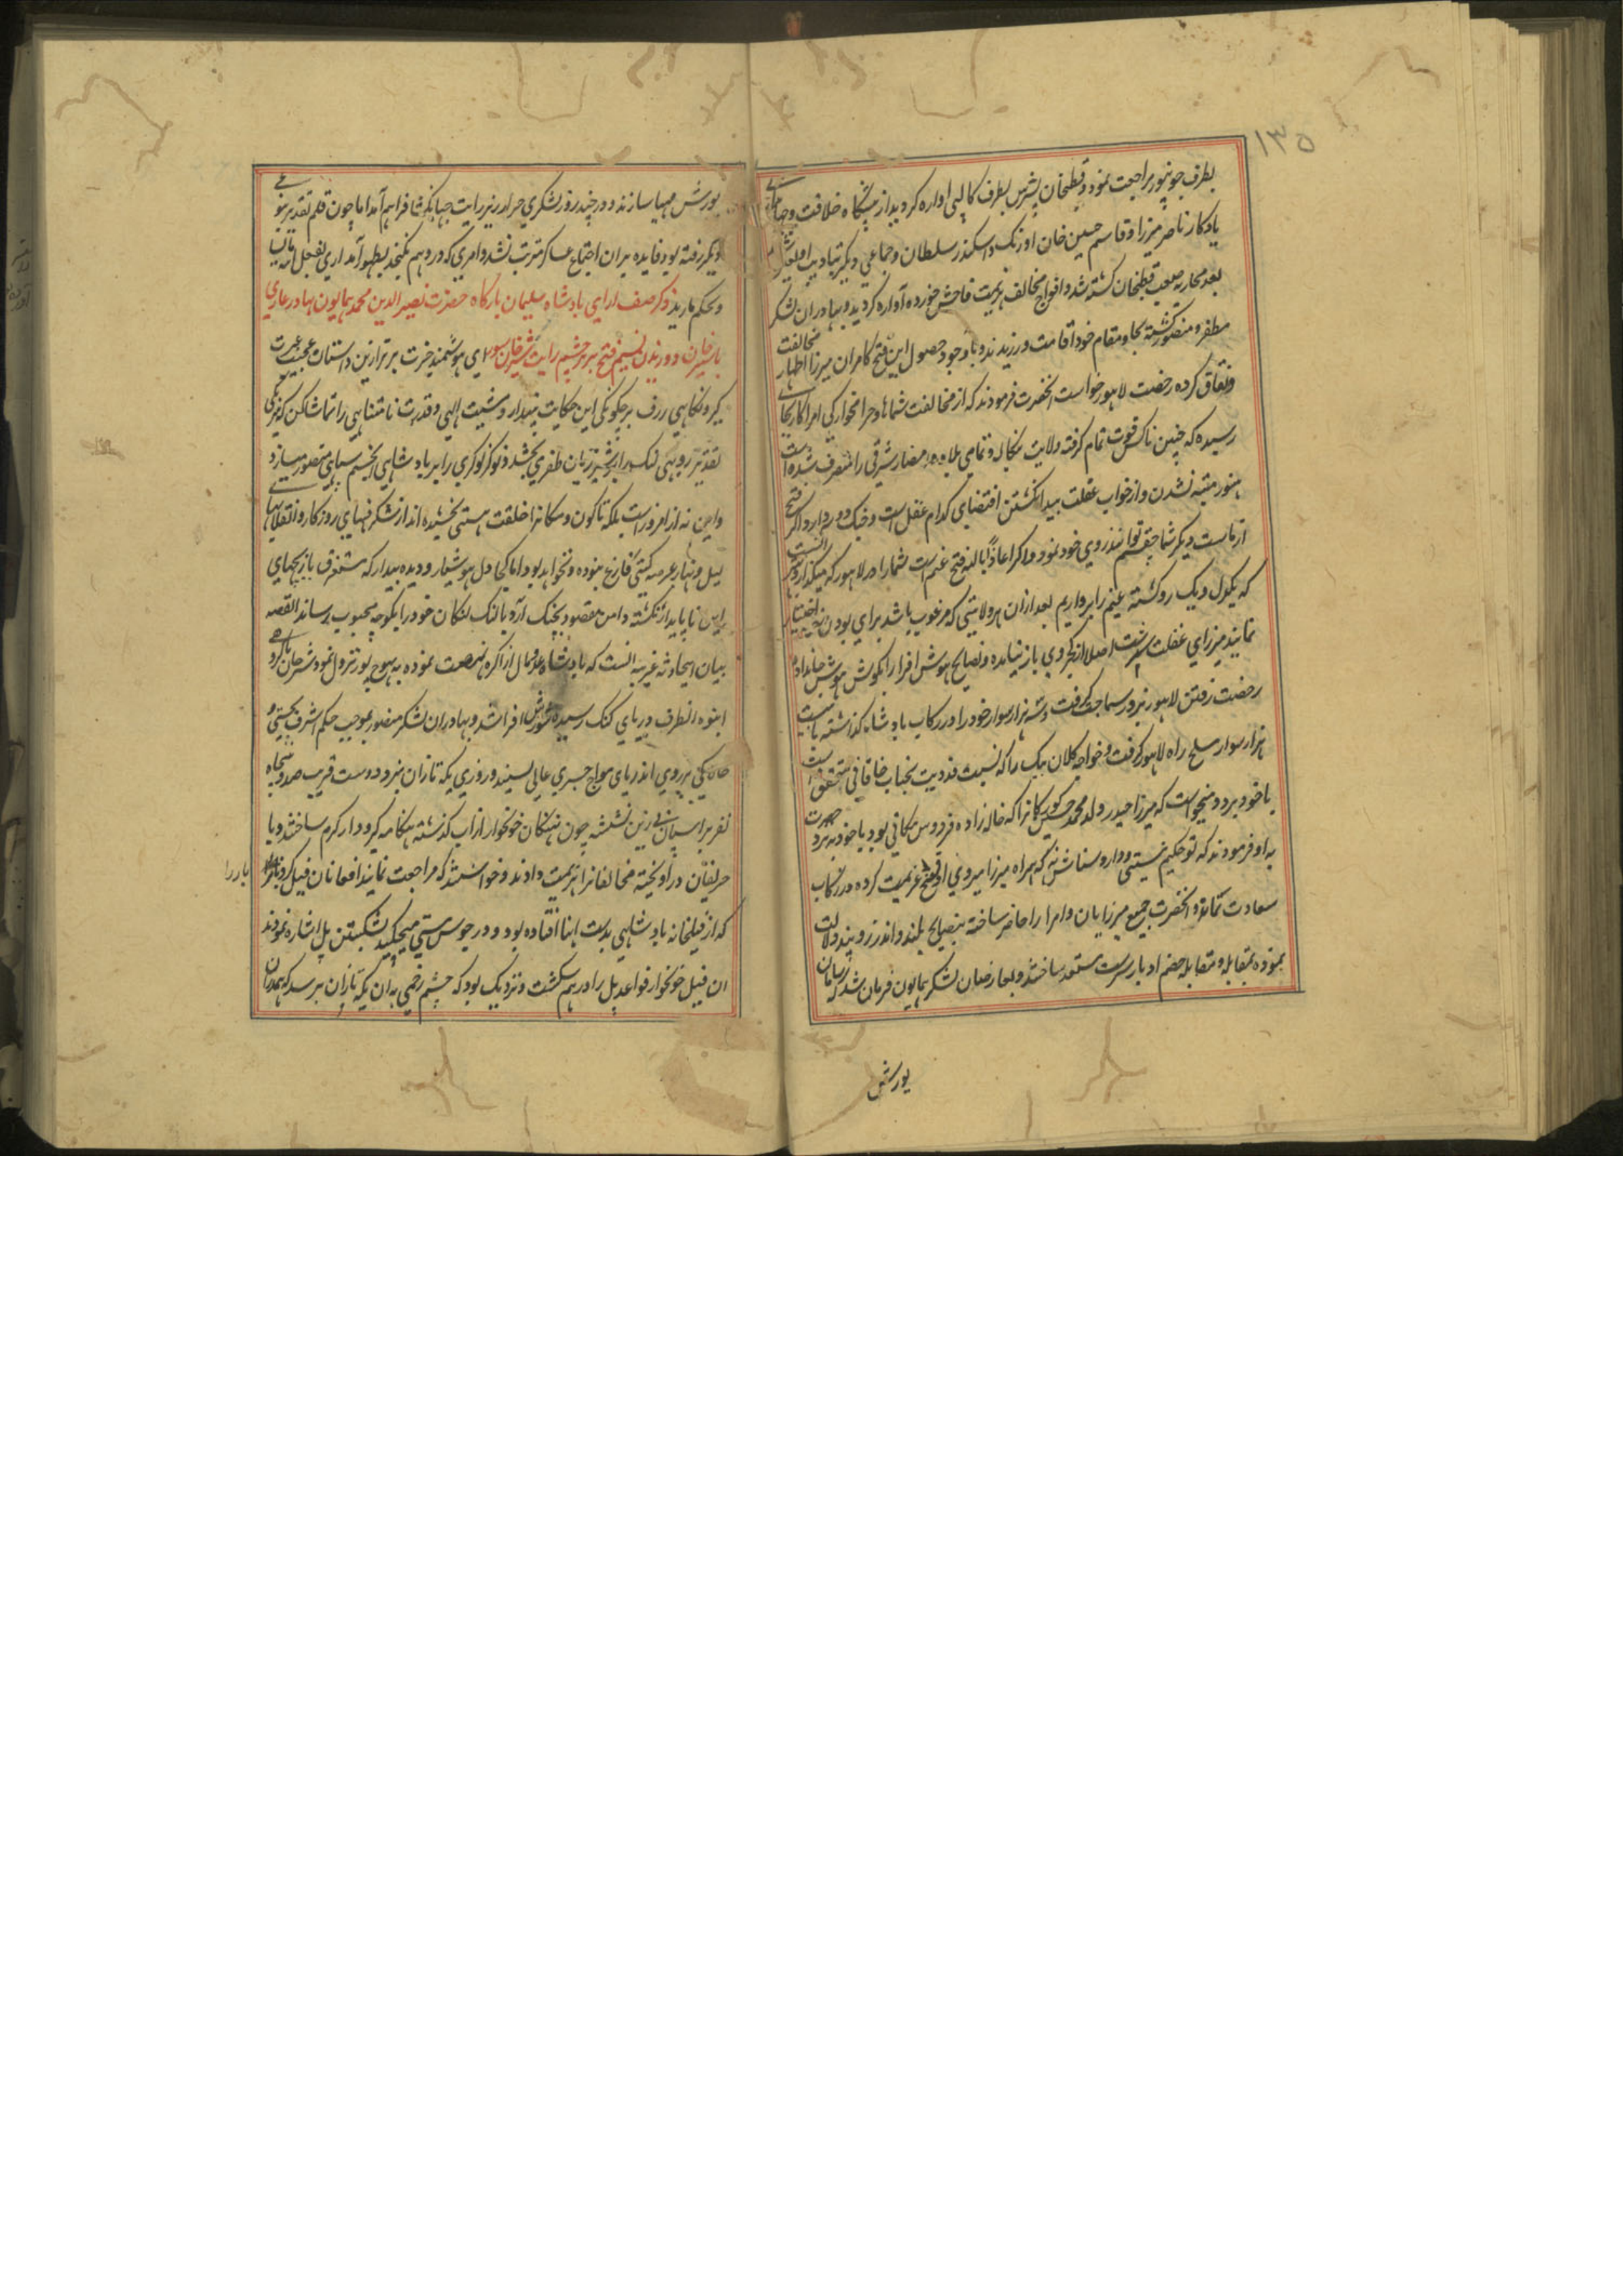 ۱۳۵
بطرف جونپور مراجعت نموده و قطبخان پسرش بطرف کالپی اواره کردید از پیشکاه خلافت و جهانبانی
یادکار ناصر میرزا و قاسم حسین خان اوزبک و اسکندر سلطان و جماعی دیکر بتادیب او
بعد محاربه صعب قطبخان کشته شد و افواج مخالف هزیمت فاحش خورده آواره کردید و بهادران لشکر
مظفر و منصور کشته بجا و مقام خود اقامت ورزیدند و با وجود حصول این فتح کامران میرزا اظهار مخالفت
و نفاق کرده رخصت لاهور خواست انحضرت فرمودند که از مخالفت شماها و حرامخواری امرا کار بجای
رسیده که چنین ناکس قوت تمام کرفته ولایت بنکاله و تمامی بلاد شرقی را متصرف شده است
هنوز متنبه نشدن و از خواب غفلت بیدار نکشتن اقتضای کدام عقل است و جنک دو سر دارد اکر فتح
از ماست دیکر شما چه قسم توانند روی خود نمود و اکر اعاذنا بالله فتح غنیم است شما را در لاهور که میکذارد
که یکدل و یک رو کشته غنیم را برداریم بعد از ان هر ولایتی که مرغوب باشد برای بودن خود اختیار
نمایند میرزای غفلت سرشت اصلا از کجروی باز نیامده و نصایح هوش افزا را بکوش هوش جا نداده
رخصت رفتن لاهور بزور سماجت کرفت و سه هزار سوار خود را در رکاب بادشاه کذاشته با بیست
هزار سوار مسلح راه لاهور کرفت و خواجه کلان بیک را که نسبت فدویت بجناب خاقانی متحقق است
با خود برد و میخواست که میرزا حیدر ولد محمد حسین کورکان را که خاله زاده فردوس مکانی بود با خود ببرد حضرت
به او فرمودند که تو حکیم نیستی و دارو شناس نه که همراه میرزا میروی او فسخ عزیمت کرده در رکاب
سعادت بماند و انحضرت جمیع میرزایان و امرا را حاضر ساخته بنصایح بلند و اندرز و پند دلالت
نموده بمقابله و مقاتله خصم ادبار سرشت مستعد ساختند و بعارضان لشکر همایون فرمان شد که سامان
یورش
یورش مهیا سازند و در چند روز لشکری جرار در زیر رایت جهانکشا فراهم آمد اما چون قلم تقدیر بنوعی
دیکر رفته بود فایده بران اجتماع عساکر مترتب نشد و امری که در وهم نکنجد بظهور آمد اری یفعل الله ما یشا
و یحکم ما یرید ذکر صف ارای بادشاه سلیمان بارکاه حضرت نصیرالدین محمد همایون بهادر غازی
با شیر خان و وزیدن نسیم فتح بر پرچم رایت شیر خان سور ای هوشمند خبرت برتر ازین داستان عجیب عبرت
کیر و نکاهی ژرف بر چکونکی این حکایت بیندار و مشیت الهی و قدرت نامتناهی را تماشا کن که نیرنکی
تقدیر روبهی لنک را بر شیر ژیان ظفر می بخشد و نوکر نوکری را بر بادشاهی انجم سپاهی منصور میسازد
و این نه از امروز است بلکه تا کون و مکانرا خلقت هستی بخشیده اند از شکرفیهای روزکار و انقلابهای
لیل و نهار عرصه کیتی فارغ نبوده و نخواهد بود اما کجا دل هوشیار و دیده بیدار که مستغرق بازیچهای
این ناپایدار نکشته دامن مقصود بچنک آرد یا لنک لنکان خود را بکوچه محبوب رساند القصه
بیان اینحادثه غریبه انست که بادشاه عدو مال از اکره نهضت نموده به بهوجپور نزول نمود و شیر خان با کروهی
انبوه انطرف دریای کنک رسیده شورش افزا شد و بهادران لشکر منصور بموجب حکم اشرف بچستی و
چالاکی بر روی اندریای مواج جسری عالی بستند و روزی یکه تازان نبرد دوست قریب صد و پنجاه
نفر بر اسپان بی زین نشسته چون نهنکان خونخوار از آب کذشته هنکامه کیر و دار کرم ساختند و با
حریفان در آویخته مخالفانرا هزیمت دادند و خواستند که مراجعت نمایند افغانان فیل کرد باز را
باد را
که از فیلخانه بادشاهی بدست اینها افتاده بود و در جوش مستی میچکید بشکستن پل اشاره نمودند
ان فیل خونخوار قواعد پل را در هم شکست و نزدیک بود که چشم زخمی به ان یکه تازان برسد که همدران